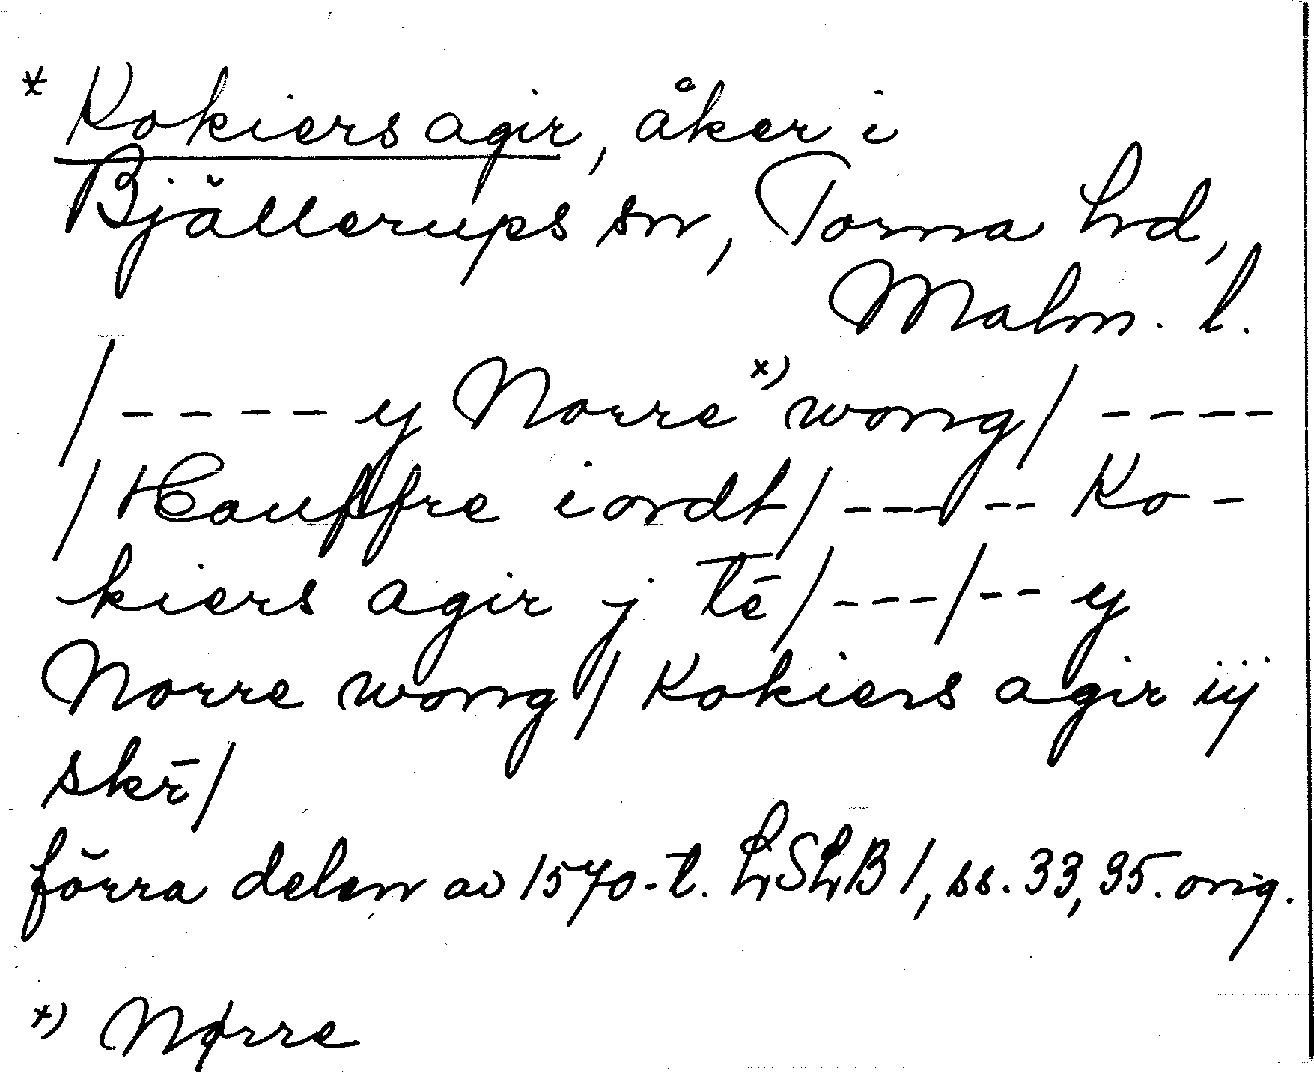 * Kokiers agir, åker i
Bjällerups sn, Torna hd,
Malm. l.
/---- y Norre *) wong/ ----
/Hauffre iordt/---- -- Ko-
kiers agir j tē/---/-- y
Norre wong/ Kokiers agir iij
skr̄/
förra delen av 1570-t. LSLB 1, ss. 33, 35. orig.
*) Nørre